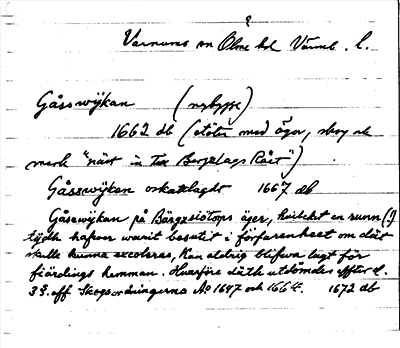 ?
Varnums sn Ölme hd Värml. l.
Gåsswijkan (nybygge)
1662 db (stöter med ägor, skog och
mark "närt in till Bergslags Rået")
Gåsswijkan oskattlagdt 1667 db
Gåsewijkan på Bärgzsiötorps äger, hvilcket en runn (!)
tijdh hafwer warit besutit i förfarenheet om dät
skulle kunna excoleras, kan aldrig blifwa lagt för
fierdings hemman. Hwarföre däth utdömdes effter d.
3 §. aff Skogsordningerna Ao 1647 och 1664. 1672 db